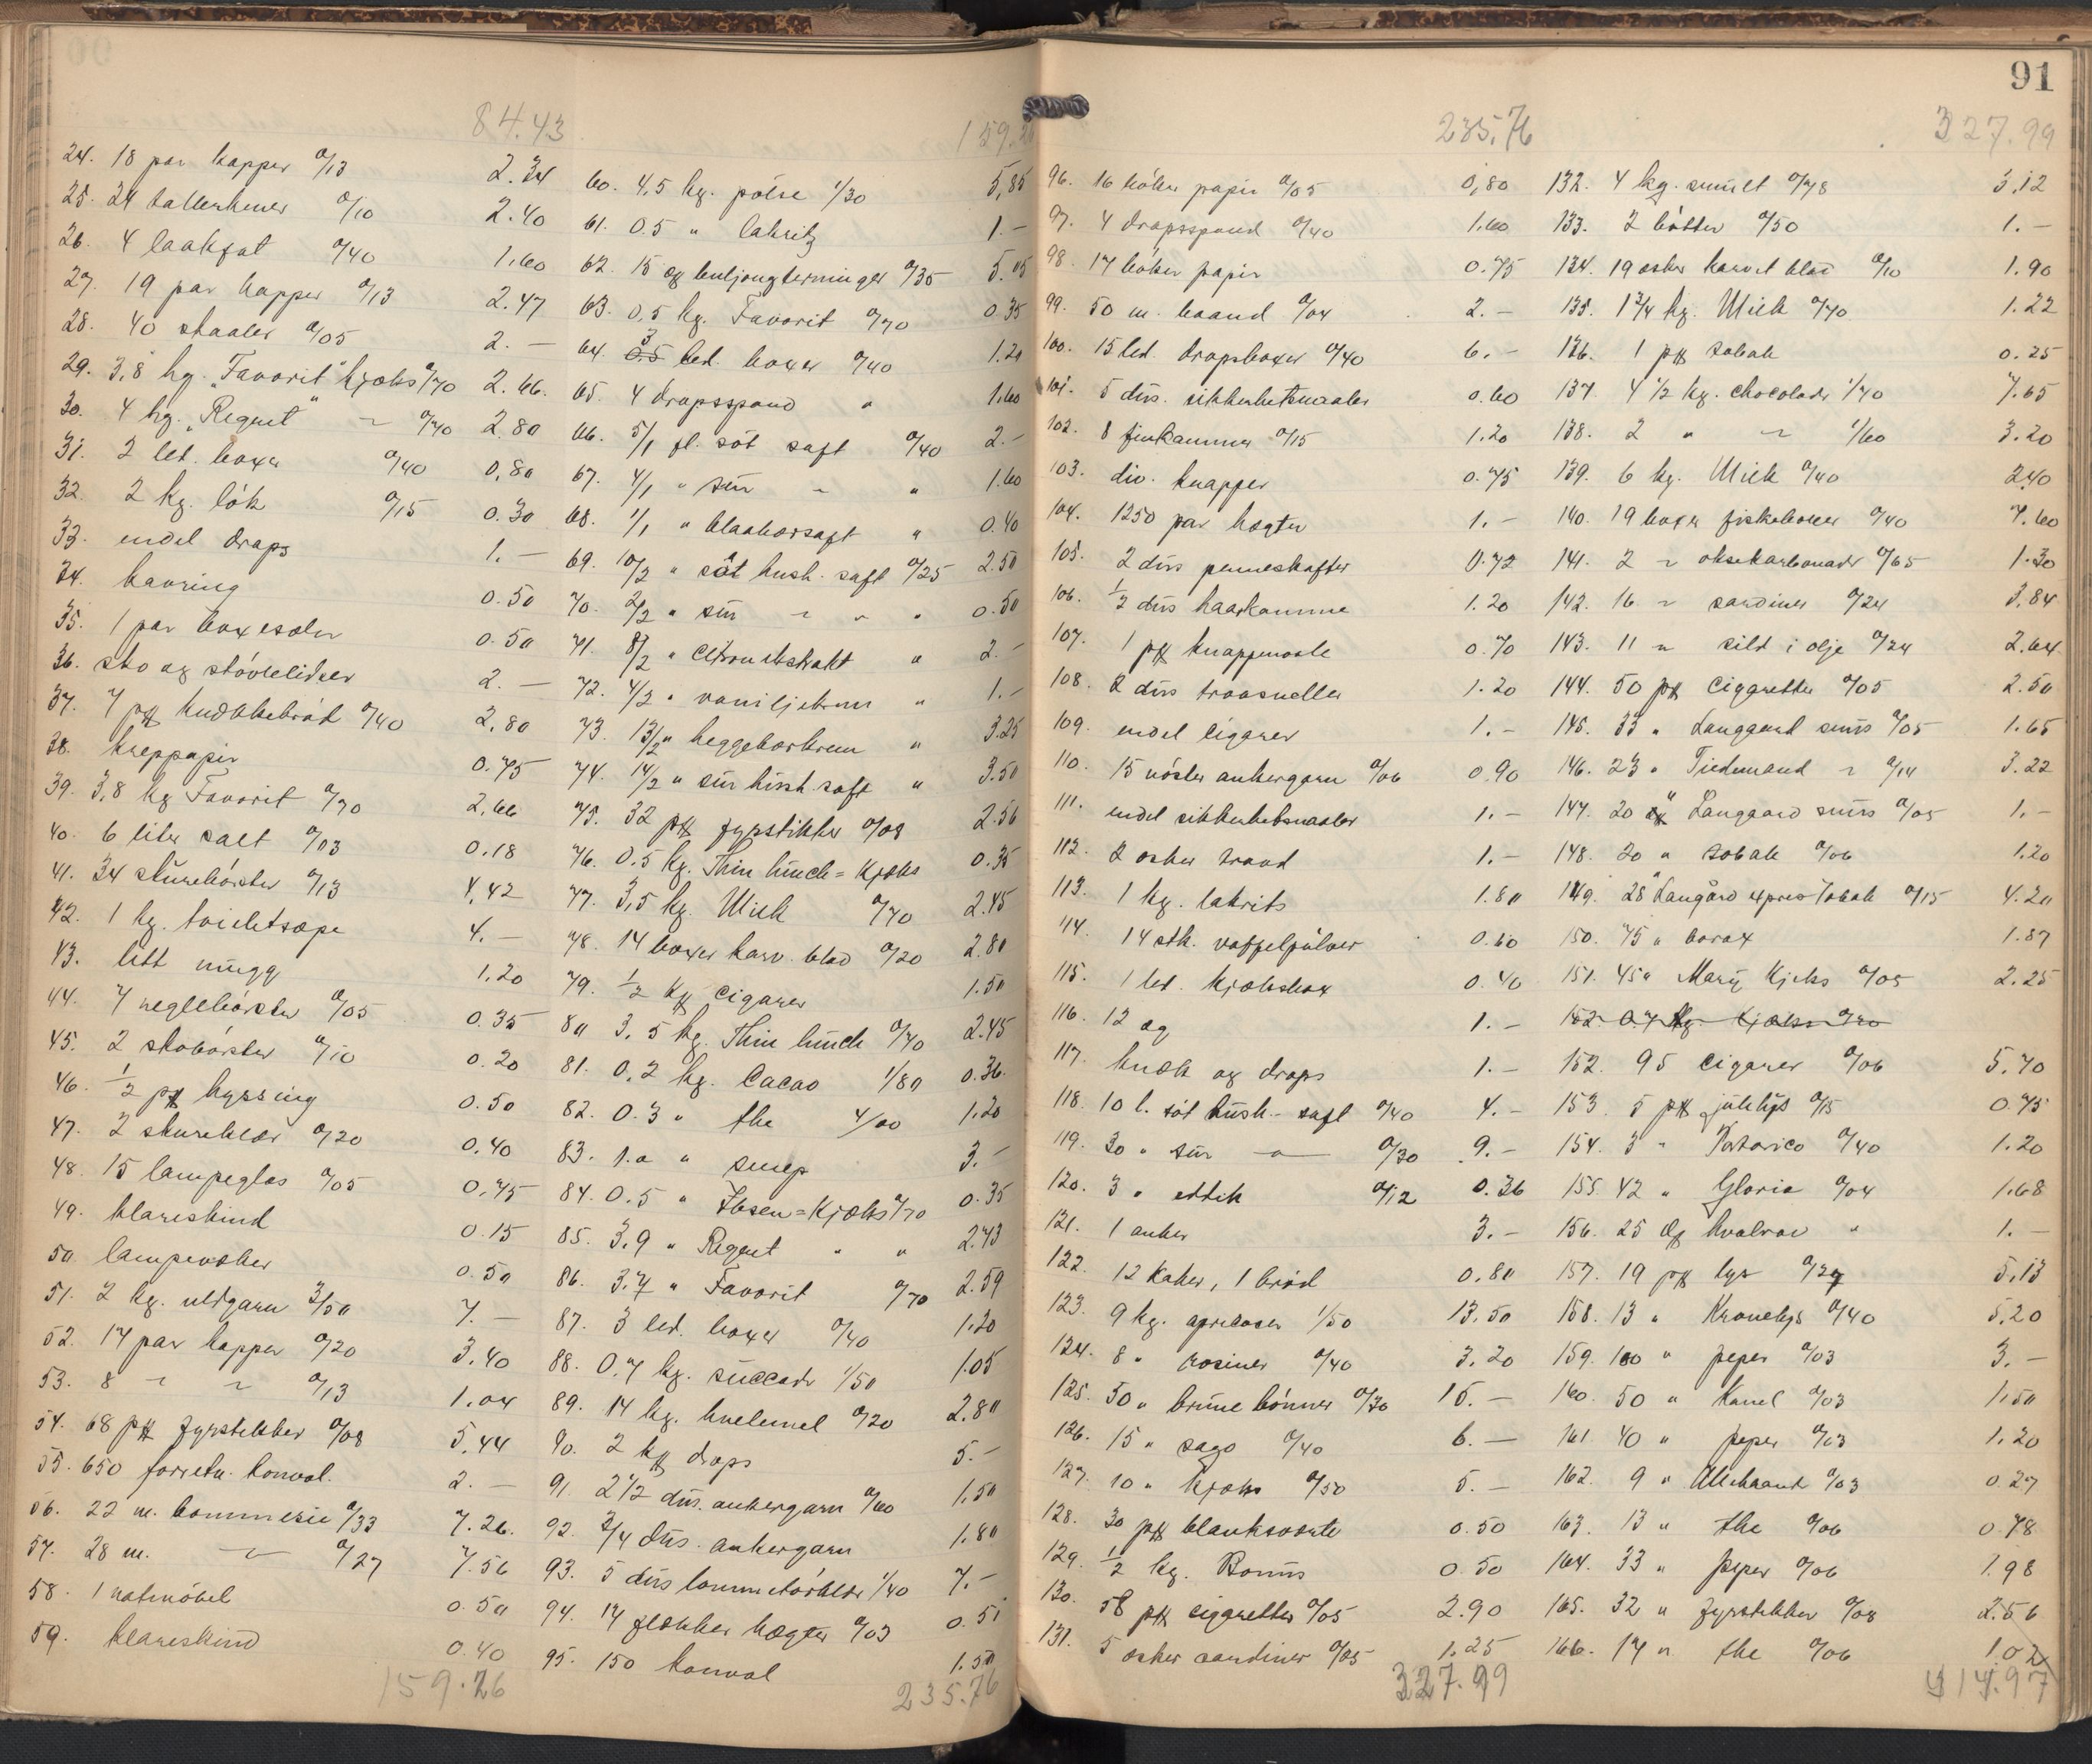 84.43
24. 18 par kopper 0/13 2.34
25. 24 tallerkener 0/10 2.40
26. 4 laakfat 0/40 1.60
27. 19 par kopper 0/13 2.47
28. 40 skaaler 0/05 2.—
29. 3,8 kg. "Favorit" kjæks 0/70 2.66.
30. 4 kg. "Regent" ~ 0/70 2.80
31. 2 led. boxer 0/40 0.80
32. 2 kg. lök 0/15 0.30
33. endel drops 1.—
34. kavring 0.50
35. 1 par 0.50
36. sko og stövlelidser 2.—
37. 7 pk knækkebröd 0/40 2.80
38. kreppapir 0.75
39. 3,8 kg Favorit 0/70 2.66
40. 6 liter salt 0/03 0.18
41. 34 skurebörster 0/13 4.42
42. 1 kg. toiletsæpe 4.—
43. litt mugg 1.20
44. 7 neglebörster 0/05 0.35
45. 2 skobörster 0/10 0.20
46. 1/2 pk hyssing 0.50
47. 2 skureklær 0/20 0.40
48. 15 lampeglas 0/05 0.75
49. klareskind 0.15
50 lampevæker 0.50
51. 2 kg. uldgarn 3/50 7.—
52. 17 par kopper 0/20 3.40
53. 8 ~ ~ 0/13 1.04
54. 68 pk fyrstikker 0/08 5.44
55. 650 konvol. 2.—
56. 22 m. 0/33 7.26.
57. 28 m. ~ 0/27 7.56
58. 1 0.50
59. klareskind 0.40
159.26
159.26
60. 4,5 kg. pölse 1/30 5,85
61. 0.5 " lakritz 1.—
62. 15 æg buljongterninger 0/35 5.
63. 0,5 kg. Favorit 0/70 0.35
64. 3 led. boxer 0/40 1.20
65. 4 dropsspand " 1.60
66. 5/1 fl. söt saft 0/40 2.—
67. 4/1 " sur ~ " 1.60
68. 1/1 " blaabærsaft " 0.40
69. 10/2 " söt hush. saft 0/25 2.50
70. 2/2 " sur ~ ~ " 0.50
71. 8/2 " citronekstrakt " 2.—
72. 4/2 " vaniljekrem " 1.—
73. 13/2 " heggebærkrem " 3.25
74. 14/2 " sur hush. saft " 3.50
75. 32 pk fyrstikker 0/08 2.56
76. 0.5 kg. Thin lunch=kjæks 0.35
77. 3,5 kg. Mieh 0/70 2.45
78. 14 boxer karv. blad 0/20 2.80
79. 1/2 kg cigarer 1.50
80 3.5 kg. Thin lunch 0/70 2.45
81. 0.2 kg. Cacao 1/80 0.36.
82. 0.3 " the 4/00 1.20
83. 1.0 " senep 3.—
84. 0.5 " Ibsen=kjæks 0/70 0.35
85. 3.9 " Regent " " 2.73
86. 3.7 " Favorit 0/70 2.59
87. 3 led. boxer 0/40 1.20
88. 0.7 kg. succade 1/50 1.05
89. 14 kg. hvetemel 0/20 2.80
90. 2 kg drops 5.—
91. 2 1/2 dus. ankergarn 0/60 1.50
92. 3/4 dus. ankergarn 1.80
93. 5 dus lommetörklær 1/40 7.—
94. 17 hægter 0/03 0.51
95. 150 konvol 1.50
235.76
91
235.76
96. 16 böker papir 0/05 0,80
97. 4 dropsspand 0/40 1.60
98. 17 böker papir 0.75
99. 50 m. baand 0/04 2.—
100. 15 led. dropsboxer 0/40 6.—
101. 5 dus. sikkerhetsnaaler 0.60
102. 8 finkammer 0/15 1.20
103. div. knapper 0.75
104. 1250 par hægter 1.—
105. 2 dus penneskafter 0.72
106. 1/2 dus haarkamme 1.20
107. 1 pk knappenaale 0.70
108. 2 dus traasneller 1.20
109. endel cigarer 1.—
110. 15 nöster ankergarn 0/06 0.90
111. endel sikkerhetsnaaler 1.—
112. 2 esker traad 1.—
113. 1 kg. lakrits 1.80
114. 14 stk. vaffelpulver 0.60
115. 1 led. kjæksbox 0.40
116. 12 æg 1.—
117. knæk og drops 1.—
118. 10 l. söt hush.- saft 0/40 4.—
119. 30 " sur —"— 0/30 9.—
120. 3 " eddik 0/12 0.36
121. 1 anker 3.—
122. 12 kaker, 1 bröd 0.80
123. 9 kg. aprikoser 1/50 13.50
124. 8 " rosiner 0/40 3.20
125. 50 " brune bönner 0/30 15.—
126. 15 " sago 0/40 6.—
127. 10 " kjæks 0/50 5.—
128. 30 pk blanksværte 0.50
129. 1/2 kg. Bonus 0.50
130. 58 pk cigaretter 0/05 2.90
131. 5 esker sardiner 0/25 1.25
327.99
327.99
132. 4 kg. smult 0/78 3,12
133. 2 bötter 0/50 1.—
134. 19 esker karvet blad 0/10 1.90
135. 1 3/4 kg. Mieh 0/70 1.22
136. 1 pk tobak 0.25
137. 4 1/2 kg. chocolade 1/70 7.65
138. 2 " ~ 1/60 3.20
139. 6 kg. Mieh 0/40 2.40
140. 19 boxer fiskeboller 0/40 7.60
141. 2 ~ oksekarbonade 0/65 1.30
142. 16 ~ sardiner 0/24 3.84
143. 11 ~ sild i olje 0/24 2.64
144. 50 pk cigaretter 0/05 2.50
145. 33 " Langaard snus 0/05 1.65
146. 23 " Tiedemand ~ 0/14 3.22
147. 20 " Langaard snus 0/05 1.—
148. 20 " tobak 0/06 1.20
149. 28 " Langård expres tobak 0/15 4.20
150. 75 " borax 1.87
151. 45 " Mary kjeks 0/05 2.25
152. 0.7 kg. kjæks 0/70
152. 95 cigarer 0/06 5.70
153. 5 pk julelys 0/15 0.75
154. 3 " Portorico 0/40 1.20
155. 42 " Gloria 0/04 1.68
156. 25 hvalrav " 1.—
157. 19 pk lys 0/27 5.13
158. 13 " Kronelys 0/40 5.20
159. 100 " peper 0/03 3.—
160. 50 " kanel 0/03 1.50
161 40 " peper 0/03 1.20
162. 9 " Allehaande 0/03 0.27
163. 13 " the 0/06 0.78
164. 33 " peper 0/06 1.98
165. 32 " fyrstikker 0/08 2.56
166. 17 " the 0/06 1.02
414.97